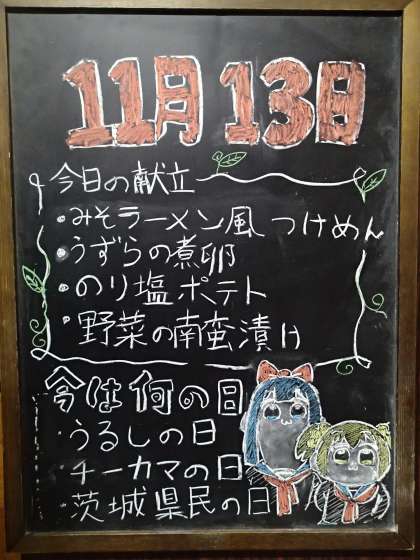 11月13日
今日の献立
・みそラーメン風 つけめん
・うずらの煮卵
・のり塩ポテト
・野菜の南蛮漬け
今は何の日
・うるしの日
・チーカマの日
・茨城県民の日